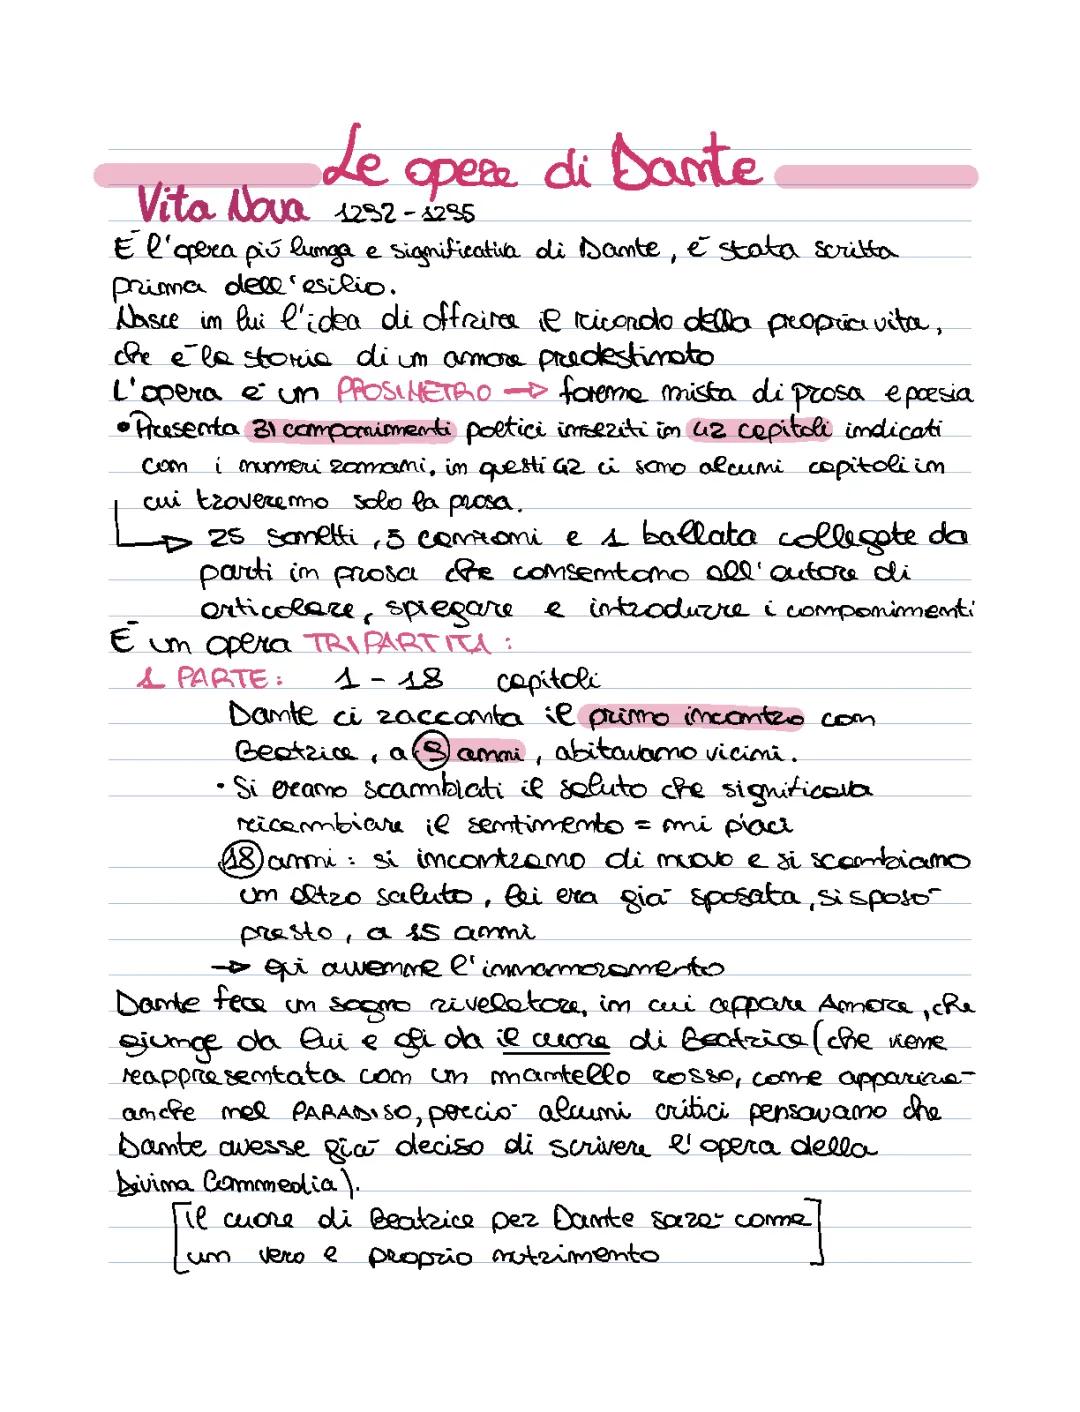 Le opere di Dante
Vita Nova 1292 - 1295
É l'opera piú lunga e significativa di Dante, é stata scritta
prima dell'esilio.
Nasce in lui l'idea di offrire il ricordo della propria vita,
che é la storia di un amore predestinato
L'opera é un PROSIMETRO → forma mista di prosa e poesia
• Presenta 31 componimenti poetici inseriti in 42 capitoli indicati
con i numeri romani, in questi 42 ci sono alcuni capitoli in
cui troveremo solo la prosa.
→ 25 sonetti, 5 canzoni e 1 ballata collegate da
parti in prosa che consentono all'autore di
articolare, spiegare e introdurre i componimenti
É un opera TRIPARTITA :
1 PARTE: 1 - 18 capitoli
Dante ci racconta il primo incontro con
Beatrice, a 9 anni, abitavano vicini.
• Si erano scambiati il saluto che significava
ricambiare il sentimento = mi piaci
18 anni : si incontrano di nuovo e si scambiano
un altro saluto, lei era giá sposata, si sposó
presto, a 15 anni
→ qui avvenne l'innamoramento
Dante fece un sogno rivelatore, in cui appare Amore, che
giunge da lui e gli da il cuore di Beatrice (che viene
reappresentata con un mantello rosso, come apparirá
anche nel PARADISO, perció alcuni critici pensavano che
Dante avesse giá deciso di scrivere l'opera della
Divina Commedia).
[il cuore di Beatrice per Dante sará come
un vero e proprio nutrimento]